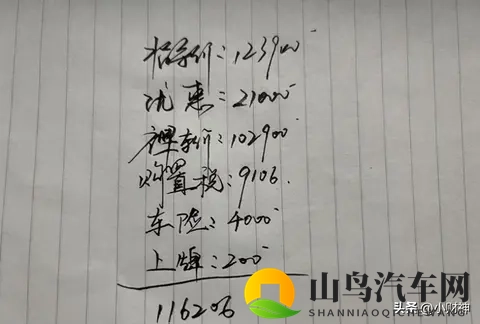 指导价:123900
优惠:21000
裸车价:102900
购置税:9106.
车险:4000
上牌:200
116206
山鸟汽车网
SHANNIAOQICHEWANG
头条@小财神